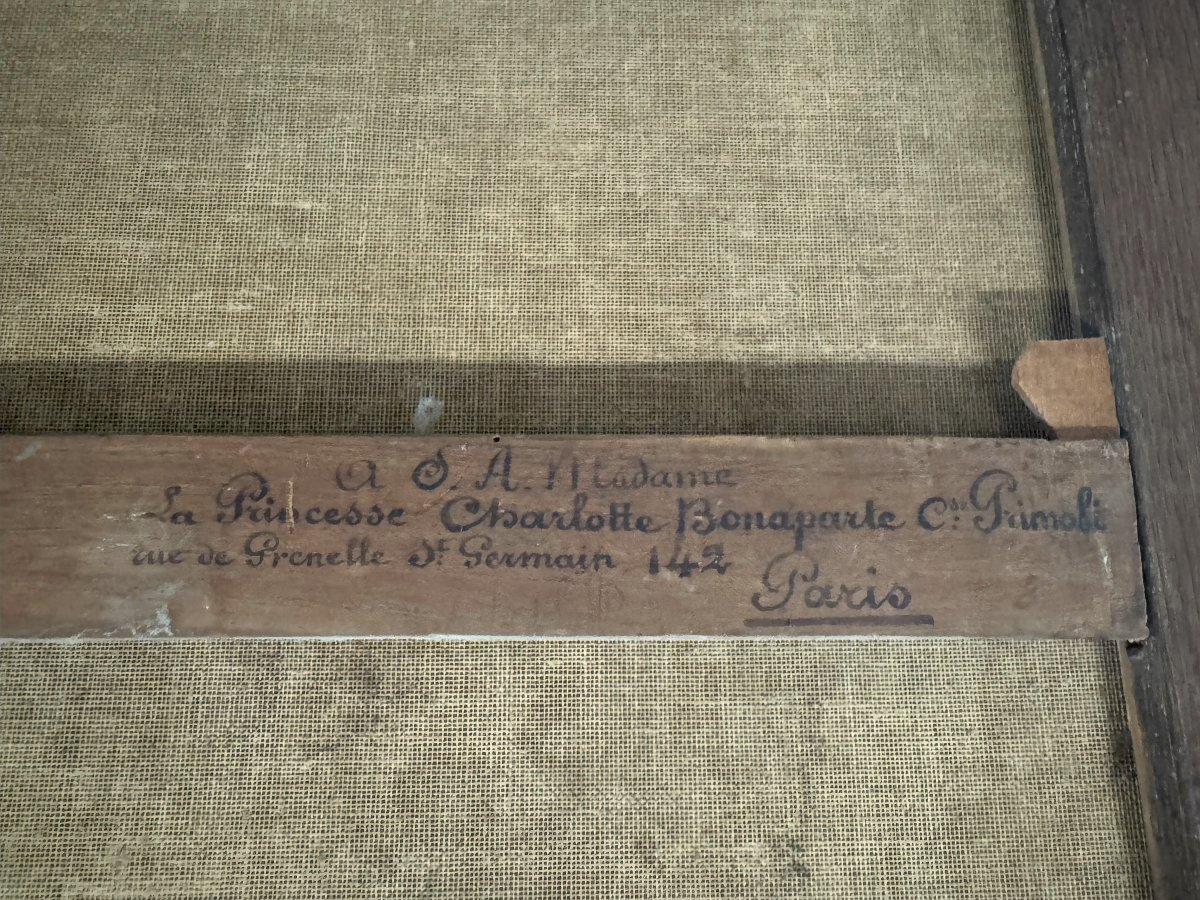 A S. A. Madame
La Princesse Charlotte Bonaparte Csse Primoli
rue de Grenelle St Germain 142
Paris